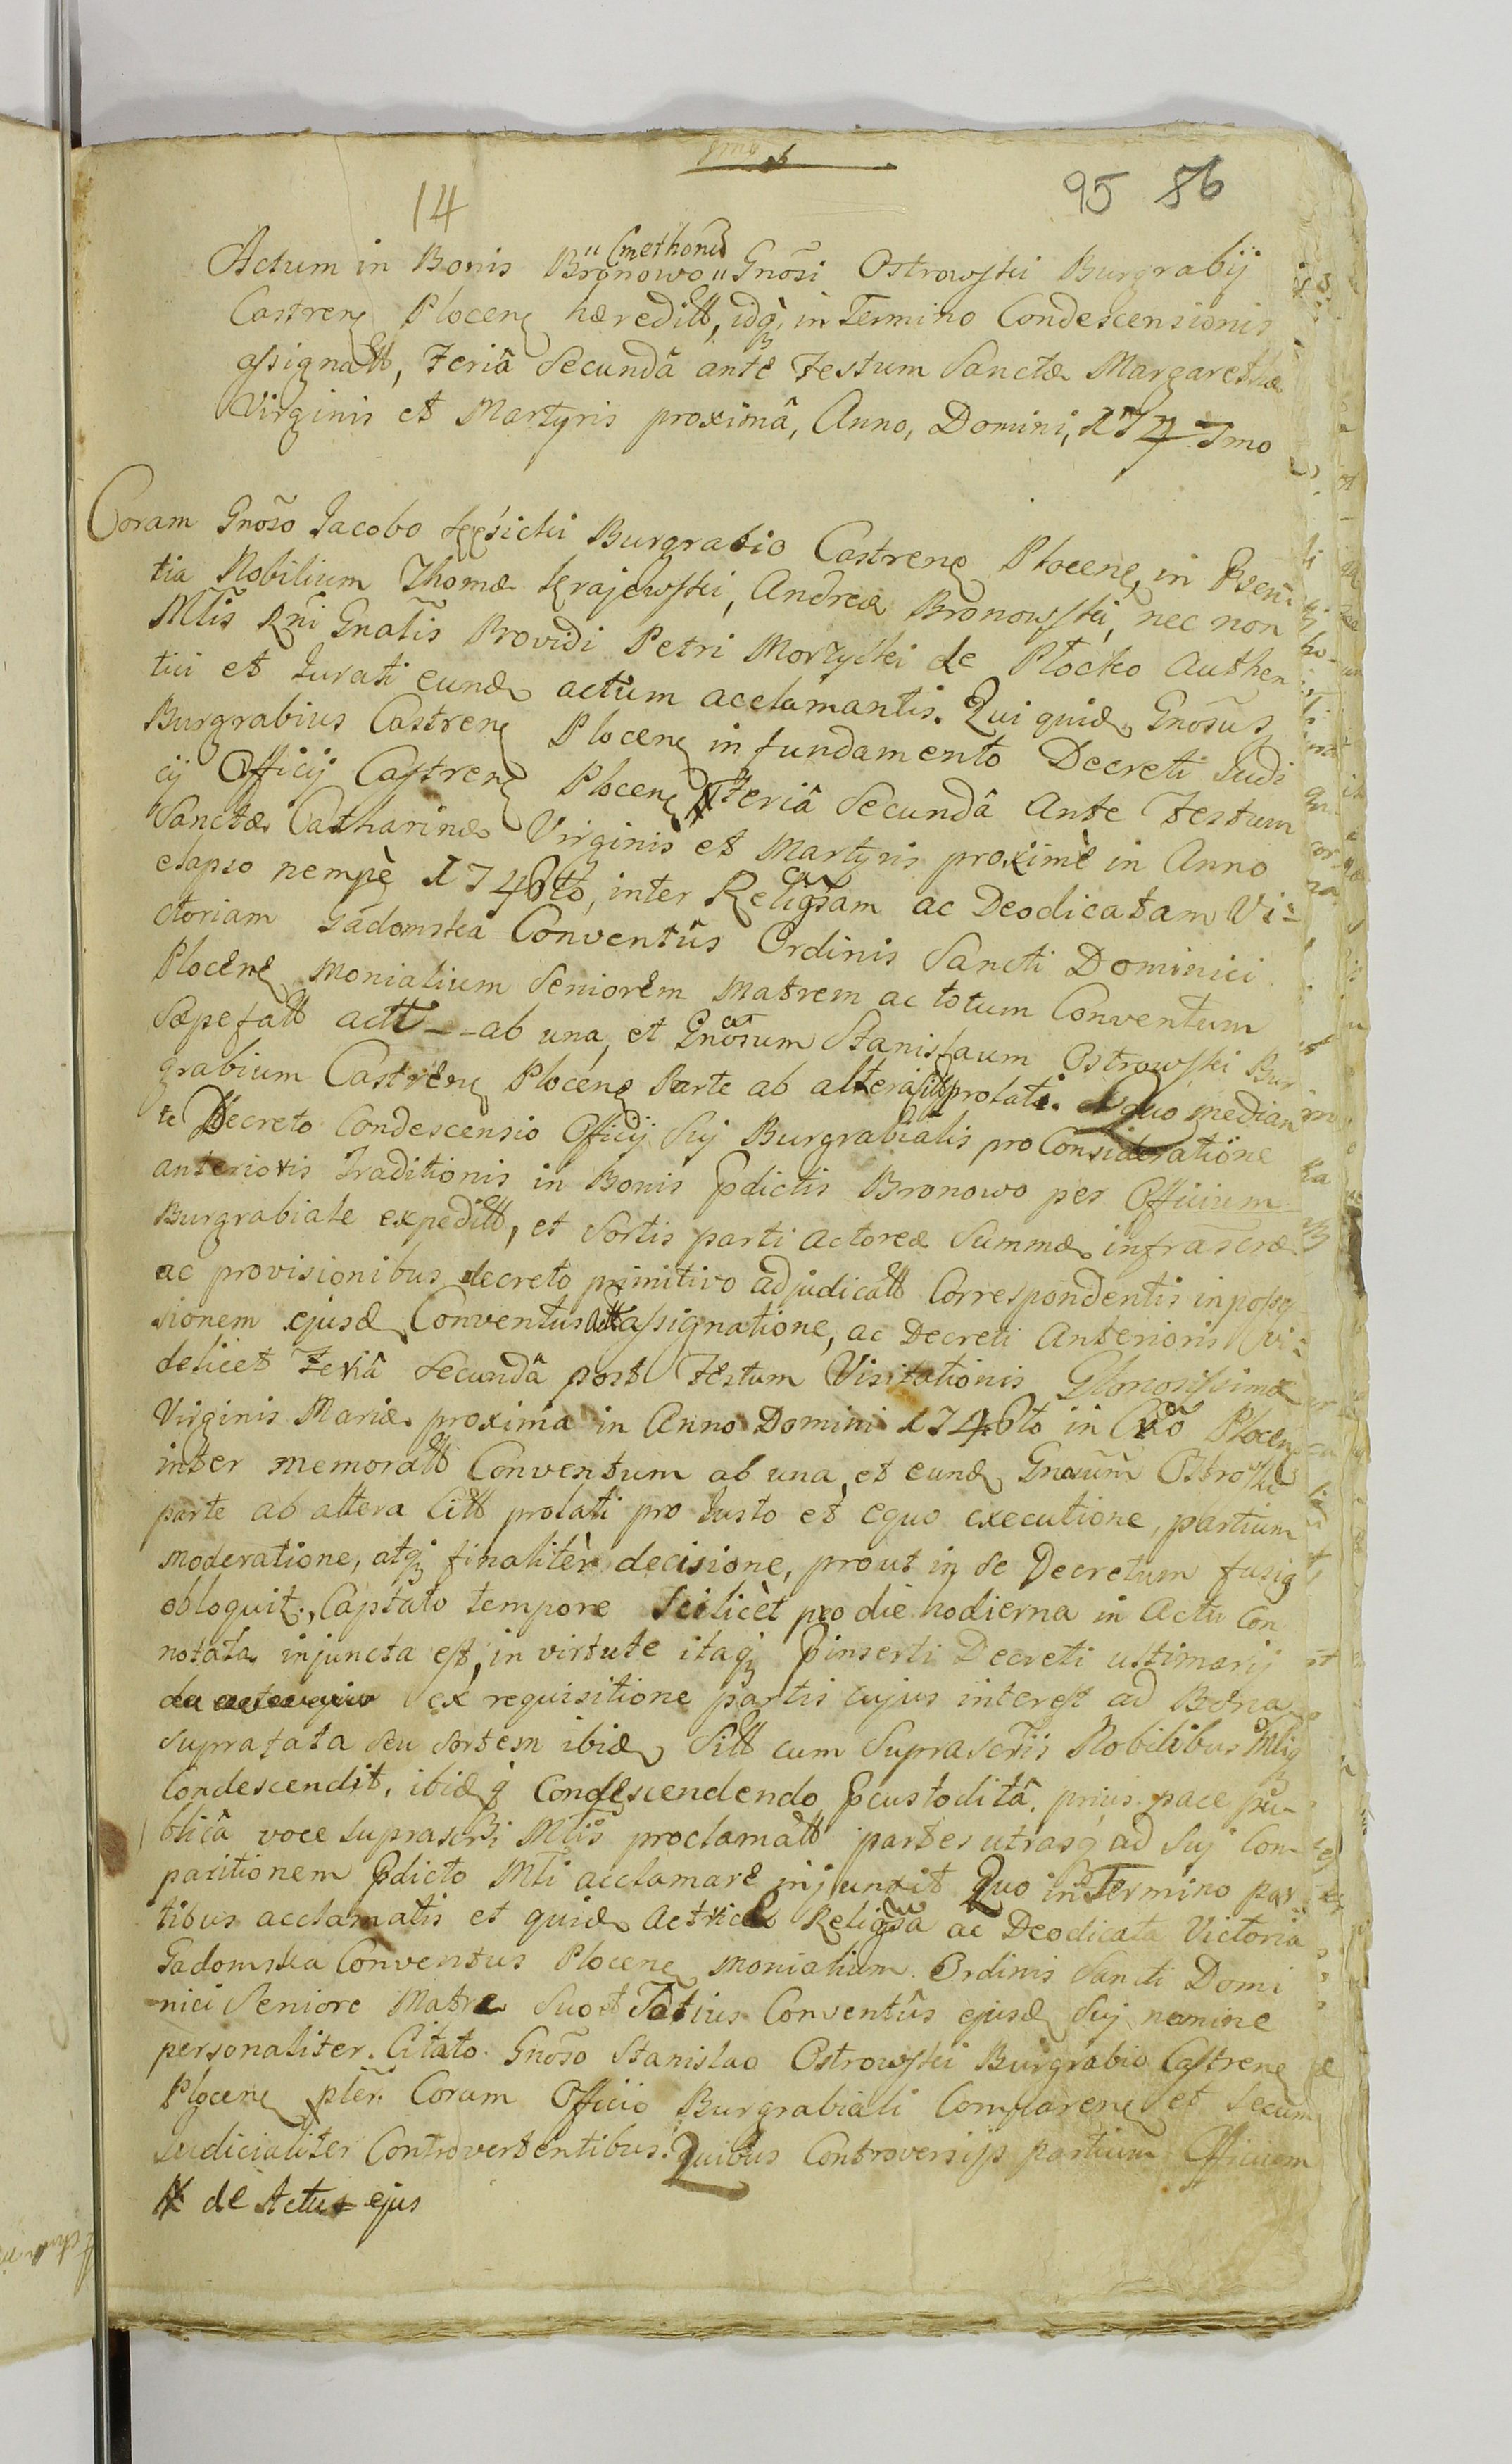 14
95 86
Actum in Bonis Bronowo "Cmethonu" Gnõsi Ostrowski Burgrabij
Castren Plocen hæreditt, idq, in Termino Condescensionis
assignatt, Feriâ Secundâ antè Festum Sanctæ Margarethæ
Virginis et Martyris proximâ, Anno, Domini, 1747mo
Coram Gnõso Jacobo Burgrabio Castren Plocen, in Psen
tia Nobilium Thomæ Krajewski, Andreæ Bronowski, nec non
Mtis Rni Gnalis Providi Petri Morzycki de Płocko Authen
tici et Jurati eund actum acclamantis. Qui quid, Gnõsus
Burgrabius Castren Plocen in fundamento Decreti Judi
cij Officij Castren Plocen Feriâ Secundâ Ante Festum
Sanctæ Catharinæ Virginis et Martyris proximè in Anno
elapso nempè 1746to, inter Religsam ac Deodicatam Vi-
ctoriam Gadomska Conventûs Ordinis Sancti Dominici
Plocen Monialium Seniorem Matrem ac totum Conventum
Sæpefatt actt -- ab una, et Gnõsum Stanislaum Ostrowski Bur
grabium Castren Plocen Parte ab altera citt prolati. A quo median
te Decreto Condescensio Officij Sui Burgrabialis pro Consideratione
anterioris Traditionis in Bonis Pdictis Bronowo per Officium
Burgrabiale expeditt, et Sortis parti actoreæ Summæ infrascræ
ac provisionibus decreto primitivo adjudicatt Correspondentis in posses
sionem ejusd Conventus assignatione, ac Decreti Anterioris vi-
delicet Feriâ Secundâ post Festum Visitationis Gloriosissimæ
Virginis Mariæ proxima in Anno Domini 1746to in Cão Plocen
inter memoratt Conventum ab una et eund Gnõsum Ostrowski
parte ab altera citt prolati pro Justo et equo executione, partium
moderatione, atq finalitèr decisione, prout in se Decretum fusig
obloquit, Captato tempore Scilicèt pro die hodierna in Actu Con
notata injuncta est, in virtute itaq Pinserti Decreti ultimarij
ex requisitione partis cujus interest ad Bona
suprafata seu Sortem ibid Sitt cum Suprascriis Nobilibus Mlig
Condescendit, ibidq Condescendendo Pcustoditâ, prius pace pu-
blicâ voce suprascri Mtis proclamatt partes utrasq ad Sui Com
paritionem Pdicto Mti acclamare injunxit Quo in Termino par
tibus acclamatis et quid Actrice Religsa ac Deodicata Victoria
Gadomska Conventus Plocen Monialium Ordinis Sancti Domi
nici Seniore Matre Suo et Totius Conventûs ejusd Sui nomine
personaliter. Citato Gnõso Stanislao Ostrowski Burgrabio Castren
Plocen plêr. Coram Officio Burgrabiali Comparen et Secum
Judicialiter Controvertentibus. Quibus Controversijs partium Officium
de Actu ejus